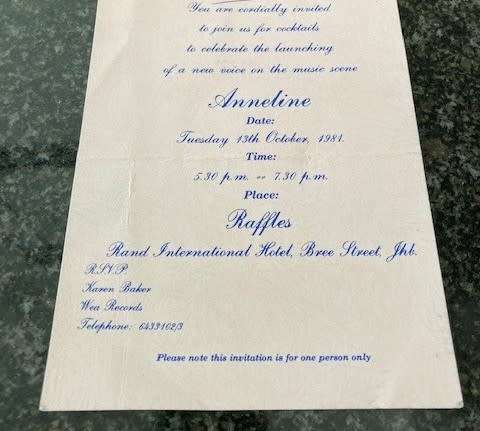 You are cordially invited
to join us for cocktails
to celebrate the launching
of a new voice on the music scene
Anneline
Date:
Tuesday 13th October, 1981.
Time:
5.30 p.m. -- 7.30 p.m.
Place:
Raffles
Rand International Hotel, Bree Street, Jhb.
R.S.V.P.
Karen Baker
Wea Records
Telephone: 6433162/3
Please note this invitation is for one person only